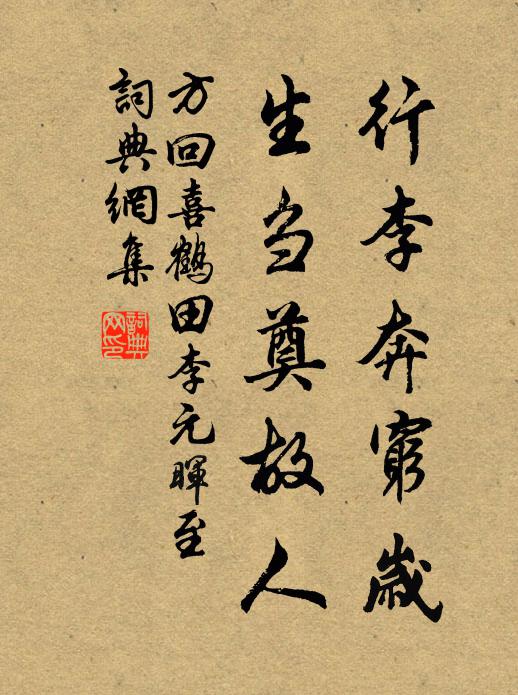 行李奔窮歲
生芻奠故人
方回喜鶴田李元暉至
詞典網集
詞典網印